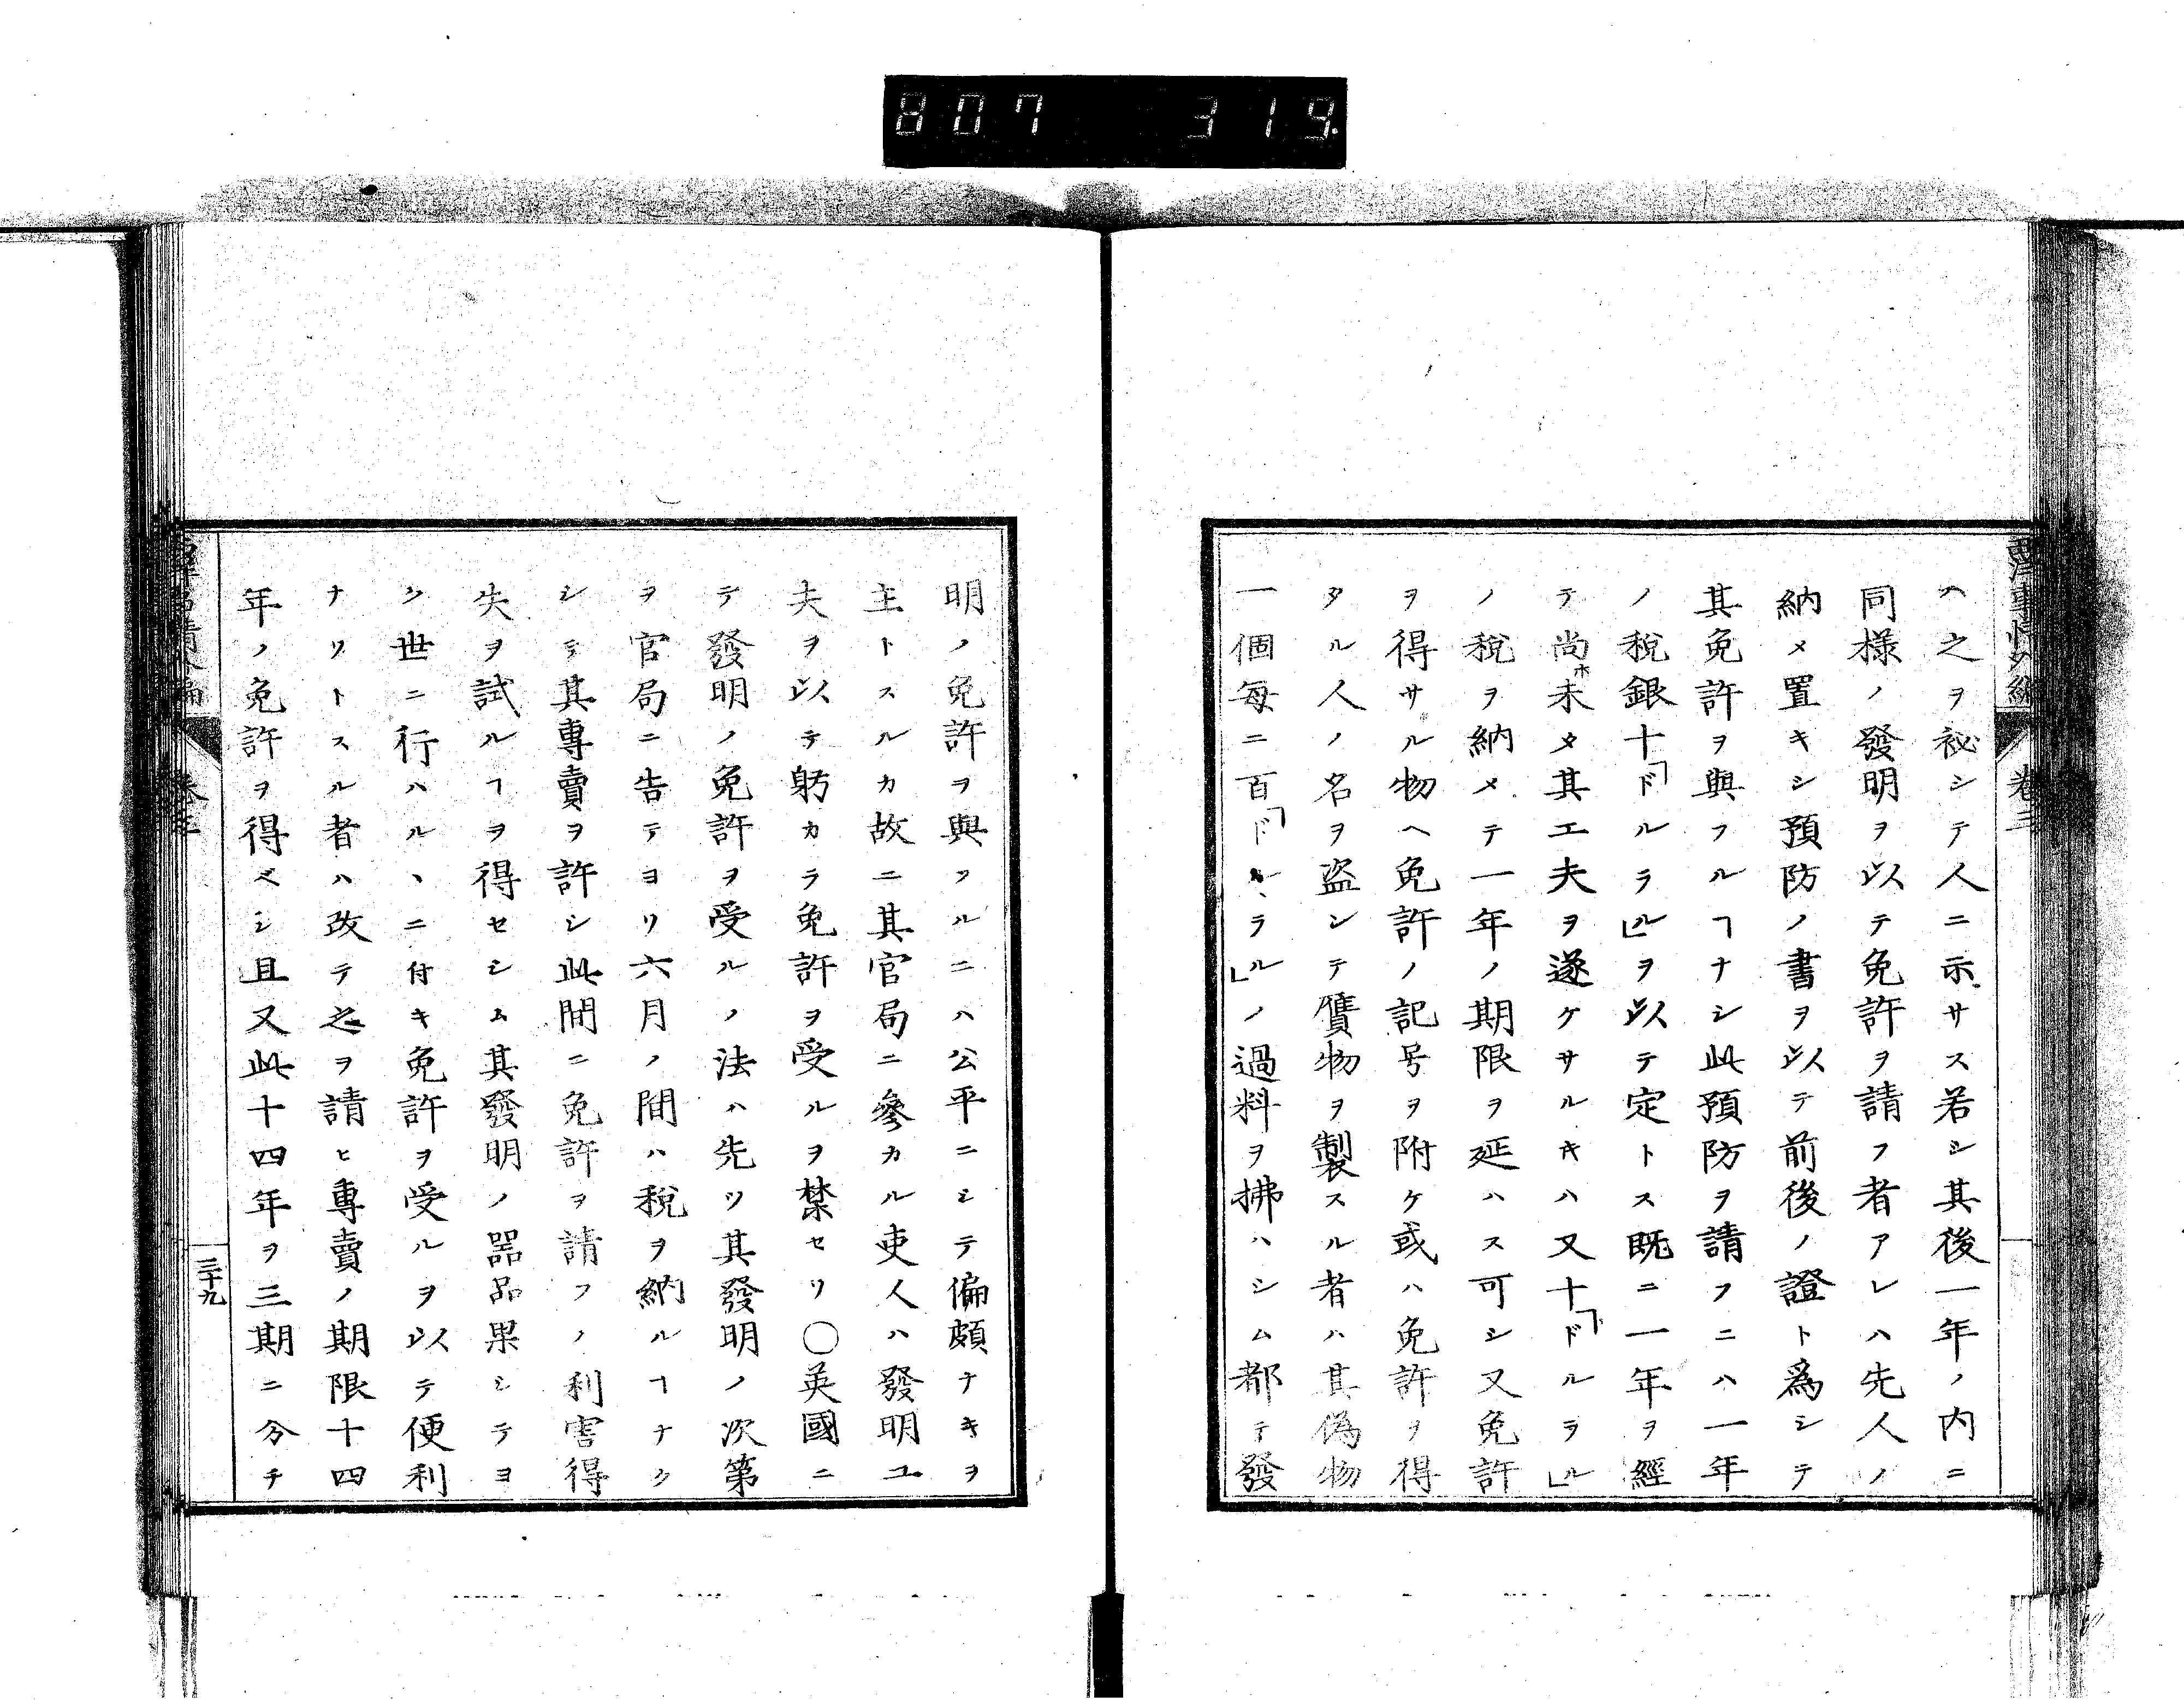 807 319
西洋事情外編 卷三
ハ之ヲ祕シテ人ニ示サス若シ其後一年ノ内ニ
同様ノ發明ヲ以テ免許ヲ請フ者アレハ先人ノ
納メ置キシ預防ノ書ヲ以テ前後ノ證ト爲シテ
其免許ヲ與フルヿナシ此預防ヲ請フニハ一年
ノ税銀十「ドルラル」ヲ以テ定トス既ニ一年ヲ經
テ尚ホ未タ其工夫ヲ遂ケサルキハ又十「ドルラル」
ノ税ヲ納メテ一年ノ期限ヲ延ハス可シ又免許
ヲ得サル物ヘ免許ノ記号ヲ附ケ或ハ免許ヲ得
タル人ノ名ヲ盗ンテ贋物ヲ製スル者ハ其偽物
一個毎ニ百「ドルラル」ノ過料ヲ拂ハシム都テ發
明ノ免許ヲ與フルニハ公平ニシテ偏頗ナキヲ
主トスルカ故ニ其官局ニ參カル吏人ハ發明工
夫ヲ以テ躬カラ免許ヲ受ルヲ禁セリ〇英國ニ
テ發明ノ免許ヲ受ルノ法ハ先ツ其發明ノ次第
ヲ官局ニ告テヨリ六月ノ間ハ税ヲ納ルヿナク
シテ其專賣ヲ許シ此間ニ免許ヲ請フノ利害得
失ヲ試ルヿヲ得セシム其發明ノ器品果シテヨ
ク世ニ行ハルヽニ付キ免許ヲ受ルヲ以テ便利
ナリトスル者ハ改テ之ヲ請ヒ專賣ノ期限十四
年ノ免許ヲ得ベシ且又此十四年ヲ三期ニ分チ
西洋事情外編 卷三 三十九